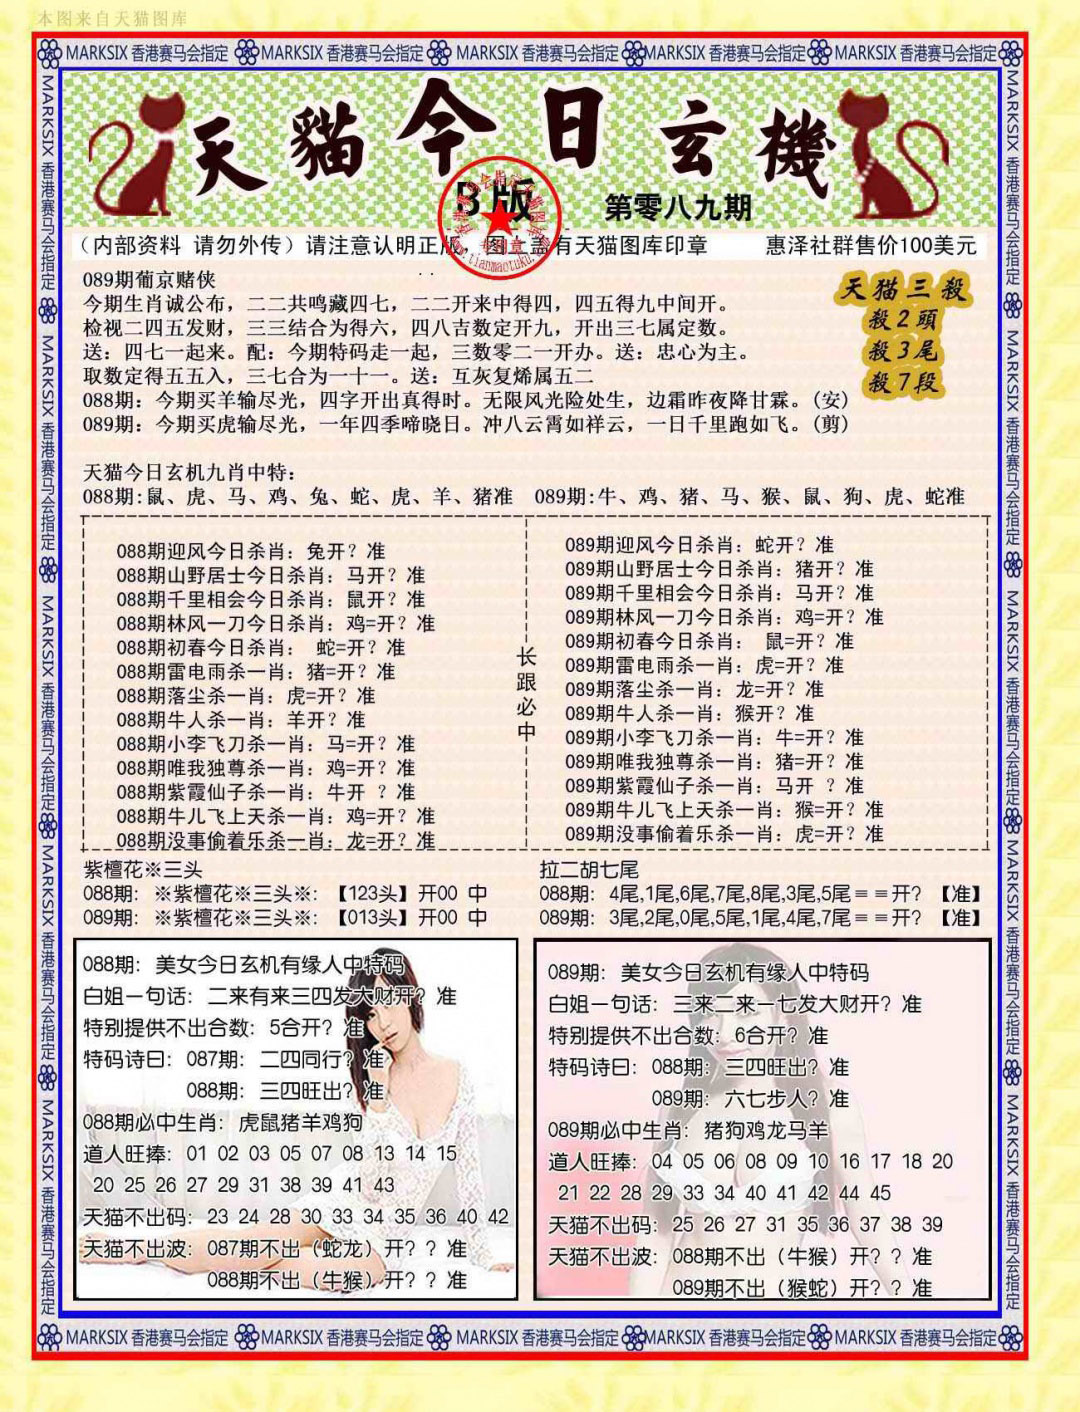 本图来自天猫图库
MARKSIX 香港赛马会指定 MARKSIX 香港赛马会指定 MARKSIX 香港赛马会指定 MARKSIX 香港赛马会指定 MARKSIX 香港赛马会指定
MARKSIX 香港赛马会指定 MARKSIX 香港赛马会指定 MARKSIX 香港赛马会指定 MARKSIX 香港赛马会指定 MARKSIX 香港赛马会指定
MARKSIX 香港赛马会指定 MARKSIX 香港赛马会指定 MARKSIX 香港赛马会指定 MARKSIX 香港赛马会指定 MARKSIX 香港赛马会指定
天貓今日玄機
B版
第零八九期
专用章
www.tianmaotuku.com
（内部资料 请勿外传）请注意认明正版，图上盖有天猫图库印章
惠泽社群售价100美元
089期葡京赌侠
今期生肖诚公布，二二共鸣藏四七，二二开来中得四，四五得九中间开。
检视二四五发财，三三结合为得六，四八吉数定开九，开出三七属定数。
送：四七一起来。配：今期特码走一起，三数零二一开办。送：忠心为主。
取数定得五五入，三七合为一十一。送：互灰复烯属五二
088期：今期买羊输尽光，四字开出真得时。无限风光险处生，边霜昨夜降甘霖。(安)
089期：今期买虎输尽光，一年四季啼晓日。冲八云霄如祥云，一日千里跑如飞。(剪)
天猫三殺
殺2頭
殺3尾
殺7段
天猫今日玄机九肖中特：
088期:鼠、虎、马、鸡、兔、蛇、虎、羊、猪准
089期:牛、鸡、猪、马、猴、鼠、狗、虎、蛇准
088期迎风今日杀肖：兔开？准
088期山野居士今日杀肖：马开？准
088期千里相会今日杀肖：鼠开？准
088期林风一刀今日杀肖：鸡=开？准
088期初春今日杀肖： 蛇=开？准
088期雷电雨杀一肖：猪=开？准
088期落尘杀一肖：虎=开？准
088期牛人杀一肖：羊开？准
088期小李飞刀杀一肖：马=开？准
088期唯我独尊杀一肖：鸡=开？准
088期紫霞仙子杀一肖：牛开 ？准
088期牛儿飞上天杀一肖：鸡=开？准
088期没事偷着乐杀一肖：龙=开？准
长跟必中
089期迎风今日杀肖：蛇开？准
089期山野居士今日杀肖：猪开？准
089期千里相会今日杀肖：马开？准
089期林风一刀今日杀肖：鸡=开？准
089期初春今日杀肖： 鼠=开？准
089期雷电雨杀一肖：虎=开？准
089期落尘杀一肖：龙=开？准
089期牛人杀一肖：猴开？准
089期小李飞刀杀一肖：牛=开？准
089期唯我独尊杀一肖：猪=开？准
089期紫霞仙子杀一肖：马开 ？准
089期牛儿飞上天杀一肖：猴=开？准
089期没事偷着乐杀一肖：虎=开？准
紫檀花※三头
088期：※紫檀花※三头※：【123头】开00 中
089期：※紫檀花※三头※：【013头】开00 中
拉二胡七尾
088期：4尾,1尾,6尾,7尾,8尾,3尾,5尾==开？【准】
089期：3尾,2尾,0尾,5尾,1尾,4尾,7尾==开？【准】
088期：美女今日玄机有缘人中特码
白姐一句话：二来有来三四发大财开？准
特别提供不出合数：5合开？准
特码诗曰：087期：二四同行？准
088期：三四旺出？准
088期必中生肖：虎鼠猪羊鸡狗
道人旺捧：01 02 03 05 07 08 13 14 15
20 25 26 27 29 31 38 39 41 43
天猫不出码：23 24 28 30 33 34 35 36 40 42
天猫不出波：087期不出（蛇龙）开？？准
088期不出（牛猴）开？？准
089期：美女今日玄机有缘人中特码
白姐一句话：三来二来一七发大财开？准
特别提供不出合数：6合开？准
特码诗曰：088期：三四旺出？准
089期：六七步人？准
089期必中生肖：猪狗鸡龙马羊
道人旺捧：04 05 06 08 09 10 16 17 18 20
21 22 28 29 33 34 40 41 42 44 45
天猫不出码：25 26 27 31 35 36 37 38 39
天猫不出波：088期不出（牛猴）开？？准
089期不出（猴蛇）开？？准
MARKSIX 香港赛马会指定 MARKSIX 香港赛马会指定 MARKSIX 香港赛马会指定 MARKSIX 香港赛马会指定 MARKSIX 香港赛马会指定